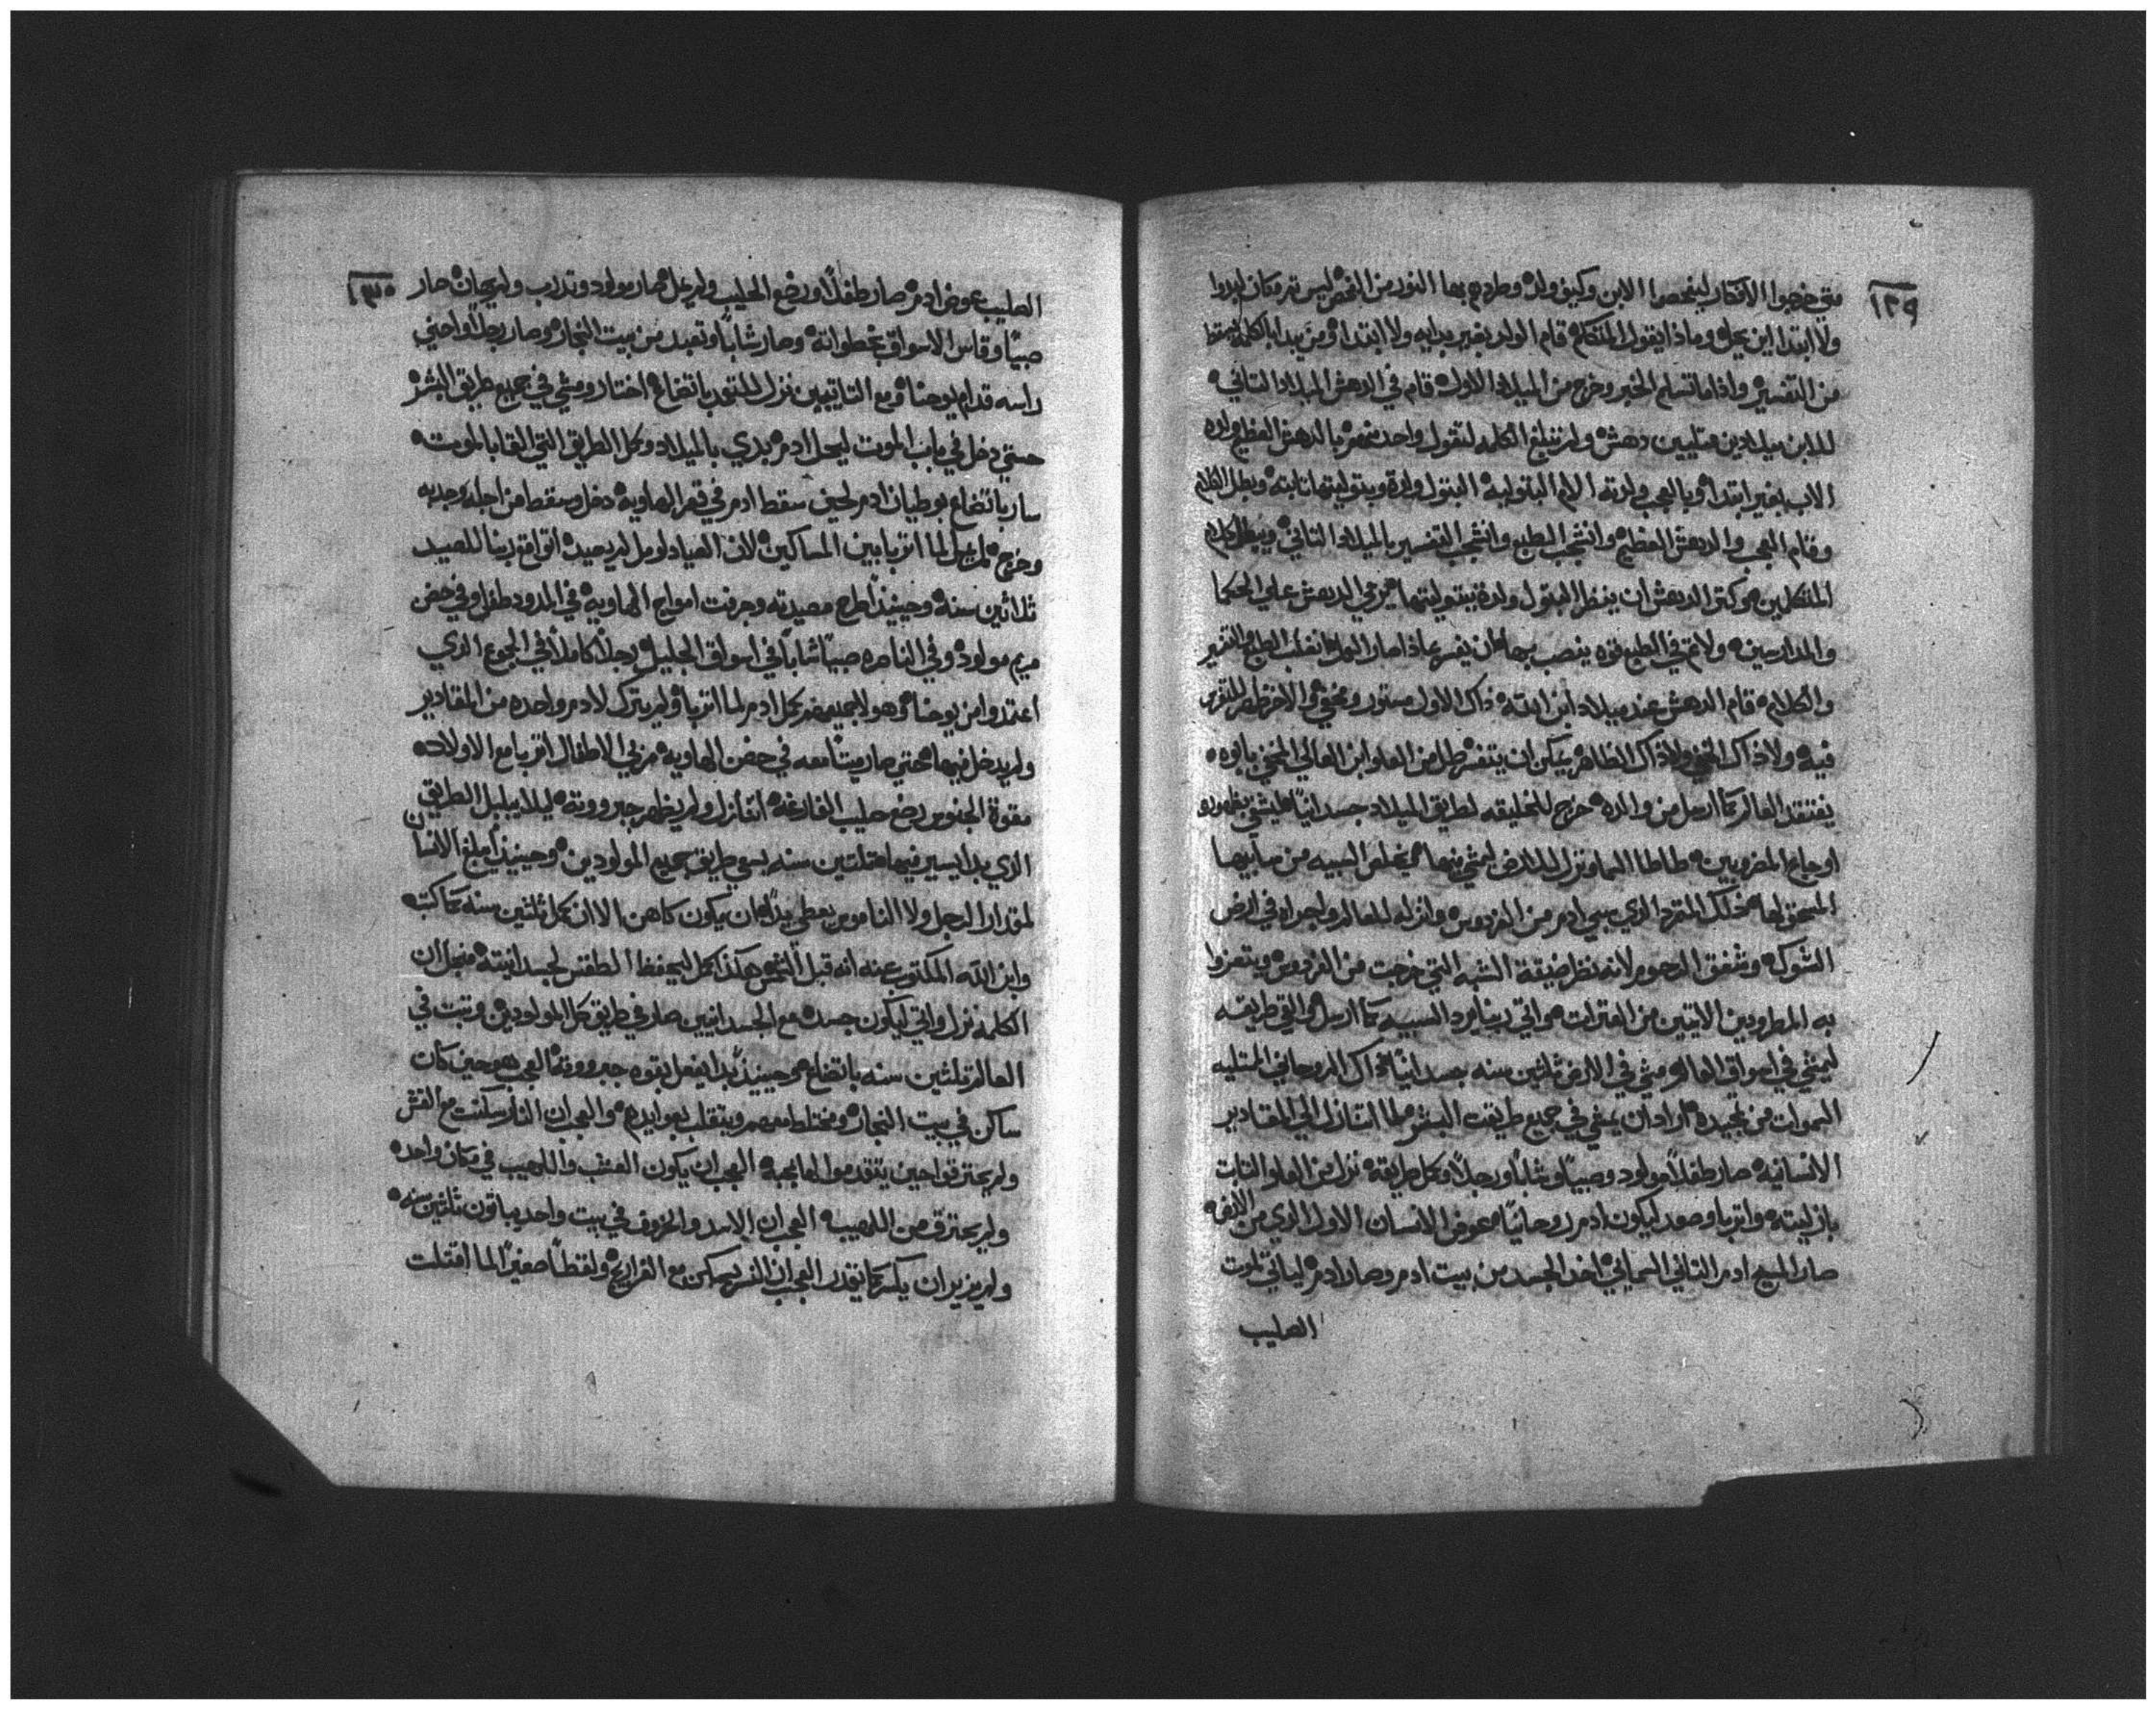 ١٢٩
متي خرجوا الافكار ليفحصوا الابن وكيف ولد وطردهم بها النور من الفحص ليس تم مكان ليدروا
ولا ابتدا اين يحل وماذا يقول المتكلم قام الولد بغير بدايه ولا ابتدا ومن يبدا بالكلمه
من التفسير واذا ما تسلم الخبر وخرج من الميلاد الاول قام في الدهش الميلاد التاني
للابن ميلادين متليين دهش ولم تبلغ الكلمه لتقول واحد منهم بالدهش العظيم ولده
الاب بغير ابتدا وبالعجب ولدته الام البتوليه البتول والدة وبتوليتها تابته وبطل الكلام
وقام العجب والدهش العظيم وانشجب الطبع وانشجب التفسير بالميلاد التاني ويبطل كلام
المتكلمين وكتر الدهش ان ينظر البتول والدة ببتوليتها مرخي الدهش علي الحكما
والمدارسين ولا تم في الطبع قوه يغصب بها ان يفسر ماذا صار الولد انغلب الطبع والتفسير
والكلام قام الدهش عند ميلاد ابن الله ذاك الاول مستور ومخفي والاخر ظهر
فيه ولا ذاك المخفي ولا ذاك الظاهر يمكن ان يتفسر طل من العلو ابن العالي المخفي بابوه
يفتقد العالم كما ارسل من والده خرج للخليقه لطريق الميلاد جسدانيا ليشفي بظهوره
اوجاع المضروبين طاطا السما ونزل للارض ليمشي فيها يخلص السبيه من سابيها
المحق لها ذلك المتمرد الذي سبي ادم من الفردوس وانزله للعالم واجراه في ارض
الشوك وشفق الرحوم لانه نظر ضيقة الشبه التي خرجت من الفردوس ويتعزوا
به المطرودين الاتيين من الفترات اتي ربنا يرد السبيه كما ارسل والقي طريقه
ليمشي في اسواق العالم ومشي في الارض تلتين سنه جسدانيا ذاك الروحاني المتليه
السموات من تمجيده اراد ان يمشي في جميع طريقت البشر ولما اتنازل الي المقادير
الانسانيه صار طفلا مولود وصبيا وشابا ورجلا وكمل طريقه نزل من العلو التابت
بازليته واتربا وصعد ليكون ادم روحانيا عوض الانسان الاول الذي من الارض
صار المسيح ادم التاني السماني اخذ الجسد من بيت ادم وصار ادم لياتي لموت
الصليب
١٣٠
الصليب عوض ادم صار طفلا ورضع الحليب ولم يمل صار مولود وتدرب ولم يهان صار
صبيا وقاس الاسواق بخطواته وصار شابا وتعبد من بيت النجار وصار رجلا واحني
راسه قدام يوحنا ومع التايبين نزل للتعمد باتضاع اختار ومشي في جميع طريق البشر
حتي دخل في باب الموت ليحل ادم بدي بالميلاد وكمل الطريق التي القا بالموت
سار باتضاع بوطيان ادم لحين سقط ادم في قعر الهاويه دخل وسقط من اجله وجدبه
وخرج لم يمل لما اتربا بين المساكين لان الصياد لو مل لم يصيد اتواقع ربنا للصيد
تلاتين سنه وحينيذ اطرح مصيدته وجرفت امواج الهاويه في المدود طفل وفي حضن
مريم مولود وفي الناصره صبيا شابا في اسواق الجليل رجلا كاملا في الجموع الذي
اعتمدوا من يوحنا وهولا جميعهم كمل ادم لما اتربا ولم يترك لادم واحده من المقادير
ولم يدخل فيها حتي صار ميتا معه في حضن الهاويه مربي الاطفال اتربا مع الاولاد
مقوة الجنوس رضع حليب الفارغه اتنازل ولم يظهر جبرووته ليلا يبلبل الطريق
الذي بدا يسير فيها تلتين سنه يسعي طريق جميع المولودين وحينيذ ابلغ الانسان
لمقدار الرجل ولا الناموس يعطي يدا ان يكون كاهن الا ان كمل تلتين سنه كما كتب
وابن الله المكتوب عنه انه قبل الشمس هكذا كمل ليحفظ الطقس لجسدانيته منجل ان
الكلمه نزل واتي ليكون جسده مع الجسدانيين صار في طريق كل المولودين وتبت في
العالم تلتين سنه باتضاع وحينيذ بدا يفعل بقوه جبرووته العجب هو حين كان
ساكن في بيت النجار ومختلط معهم ويتقلب بعوايدهم والعجب ان النار سكنت مع القش
ولم يحترق احين يتقدموا لمانجه العجب ان يكون العشب واللهيب في مكان واحد
ولم يحترق من اللهيب العجب ان الاسد والخروف في بيت واحد يباتون تلتين سنه
ولم يزير ان يكسر كما يقدر العجب ان النسر ساكن مع الفراريج ولقط صغير لما اقتلت